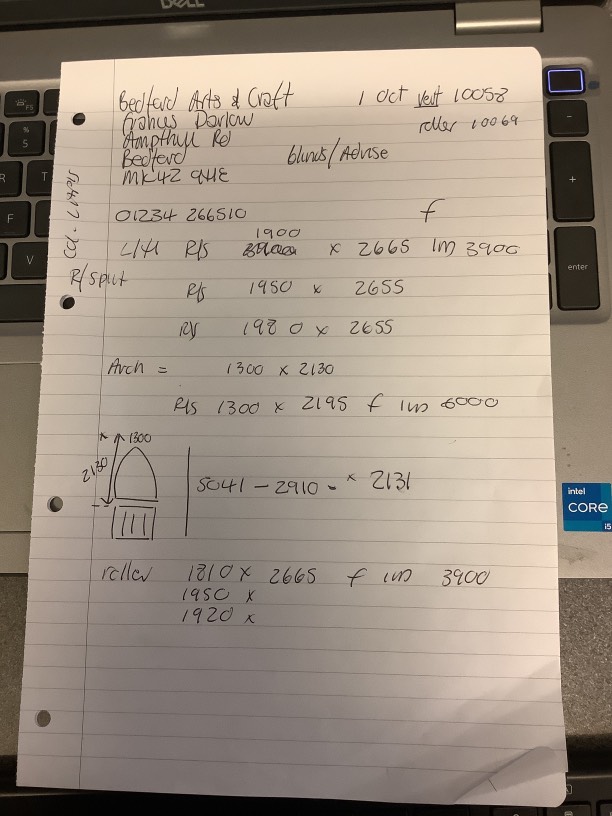 DELL
Bedford Arts & Craft 1 Oct vert 10058
Frances Darlow roller 10069
Ampthill Rd
Bedford blinds/Advise
MK42 9HE
01234 266510 f
1900
R/s x 2665 3900
R/split
R/s 1950 x 2655
R/s 1980 x 2655
Arch = 1300 x 2130
R/s 1300 x 2195 f 6000
1300
2130
5041 - 2910 - x 2131
roller 1810 x 2665 f 3900
1950 x
1920 x
intel
CORE
i5
enter